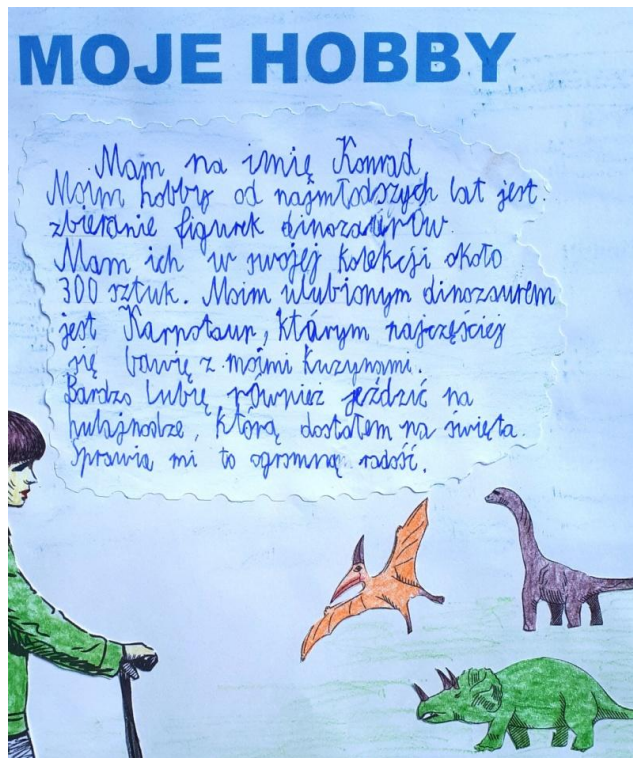 MOJE HOBBY
Mam na imię Konrad
Moim hobby od najmłodszych lat jest
zbieranie figurek dinozaurów
Mam ich w swojej kolekcji około
300 sztuk. Moim ulubionym dinozaurem
jest Karnotaur, którym najczęściej
się bawię z moimi kuzynami.
Bardzo lubię również jeździć na
hulajnodze, którą dostałem na święta.
Sprawia mi to ogromną radość.